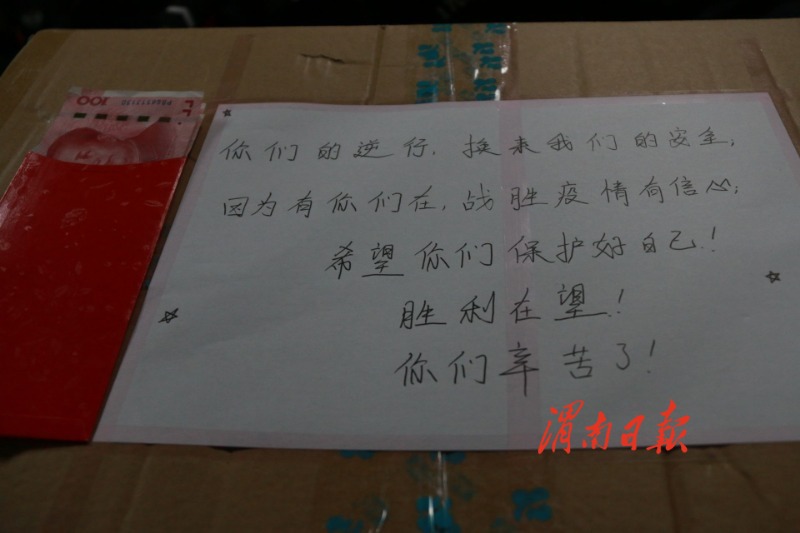 100
你们的逆行，换来我们的安全；
因为有你们在，战胜疫情有信心；
希望你们保护好自己！
胜利在望！
你们辛苦了！
渭南日报